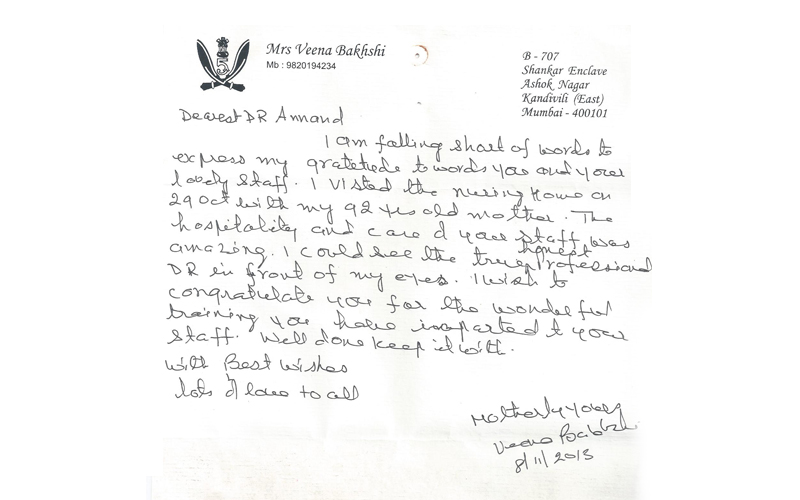 5
Mrs Veena Bakhshi
Mb : 9820194234
B - 707
Shankar Enclave
Ashok Nagar
Kandivili (East)
Mumbai - 400101
Dearest DR Annand
I am falling short of words to
express my gratitude towords you and your
lovely staff. I visted the nursing home on
29 Oct with my 92 yrs old mother. The
hospitality and care of your staff was
amazing. I could see the true honest Professional
DR in front of my eyes. I wish to
congratulate you for the wonderful
training you have imparted to your
staff. Well done keep it with.
With Best wishes
lots of love to all
Motherly yours
Veena Bakhshi
8/11/2013